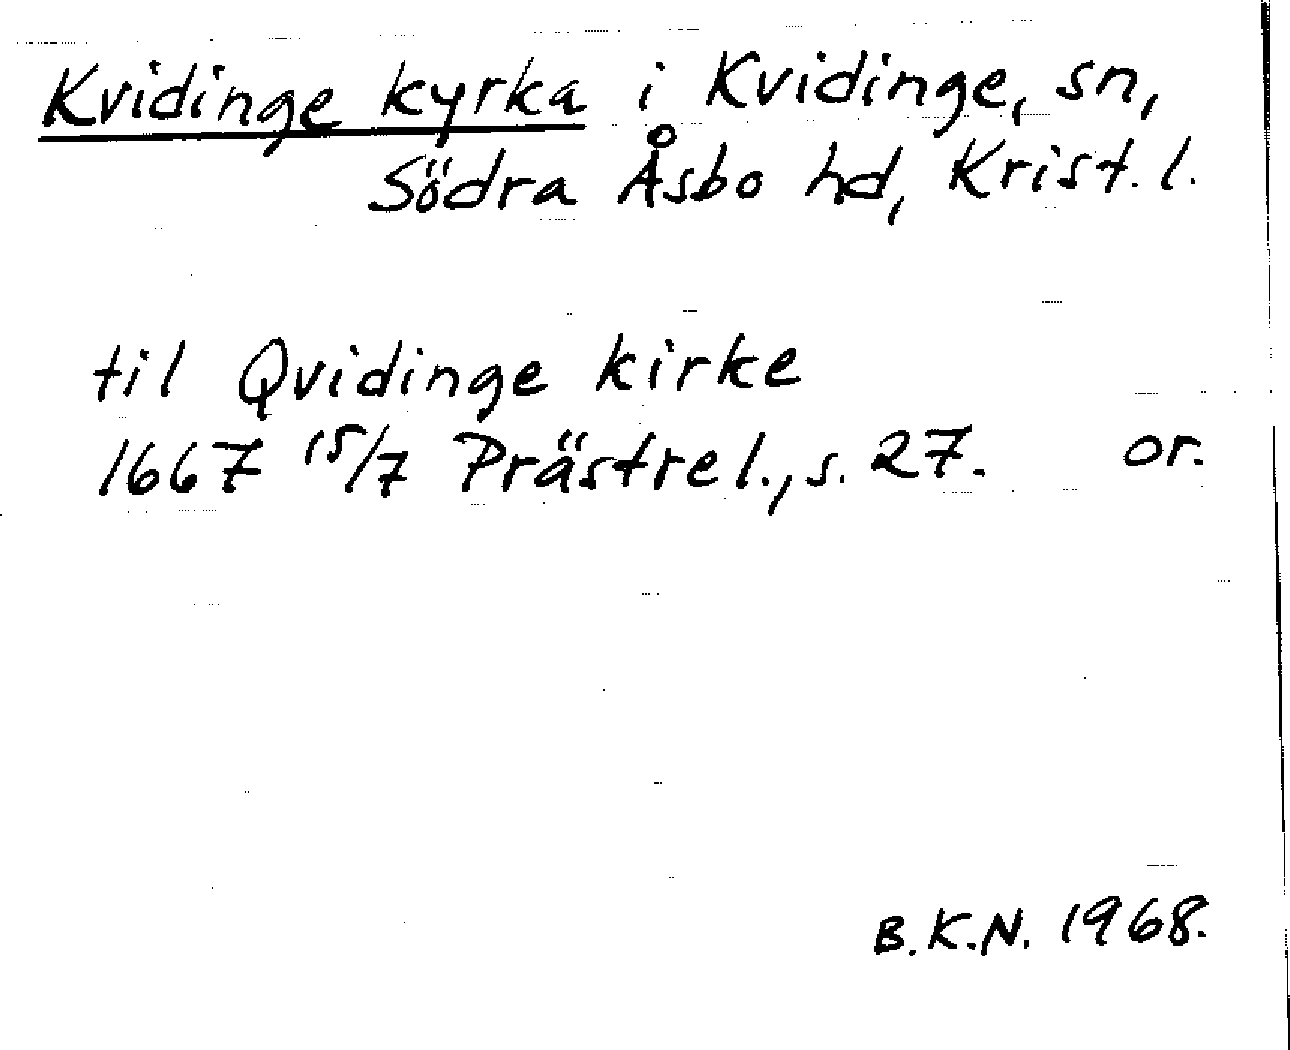 Kvidinge kyrka i Kvidinge, sn,
Södra Åsbo hd, Krist. l.
til Qvidinge kirke
1667 15/7 Prästrel., s. 27. or.
B.K.N. 1968.